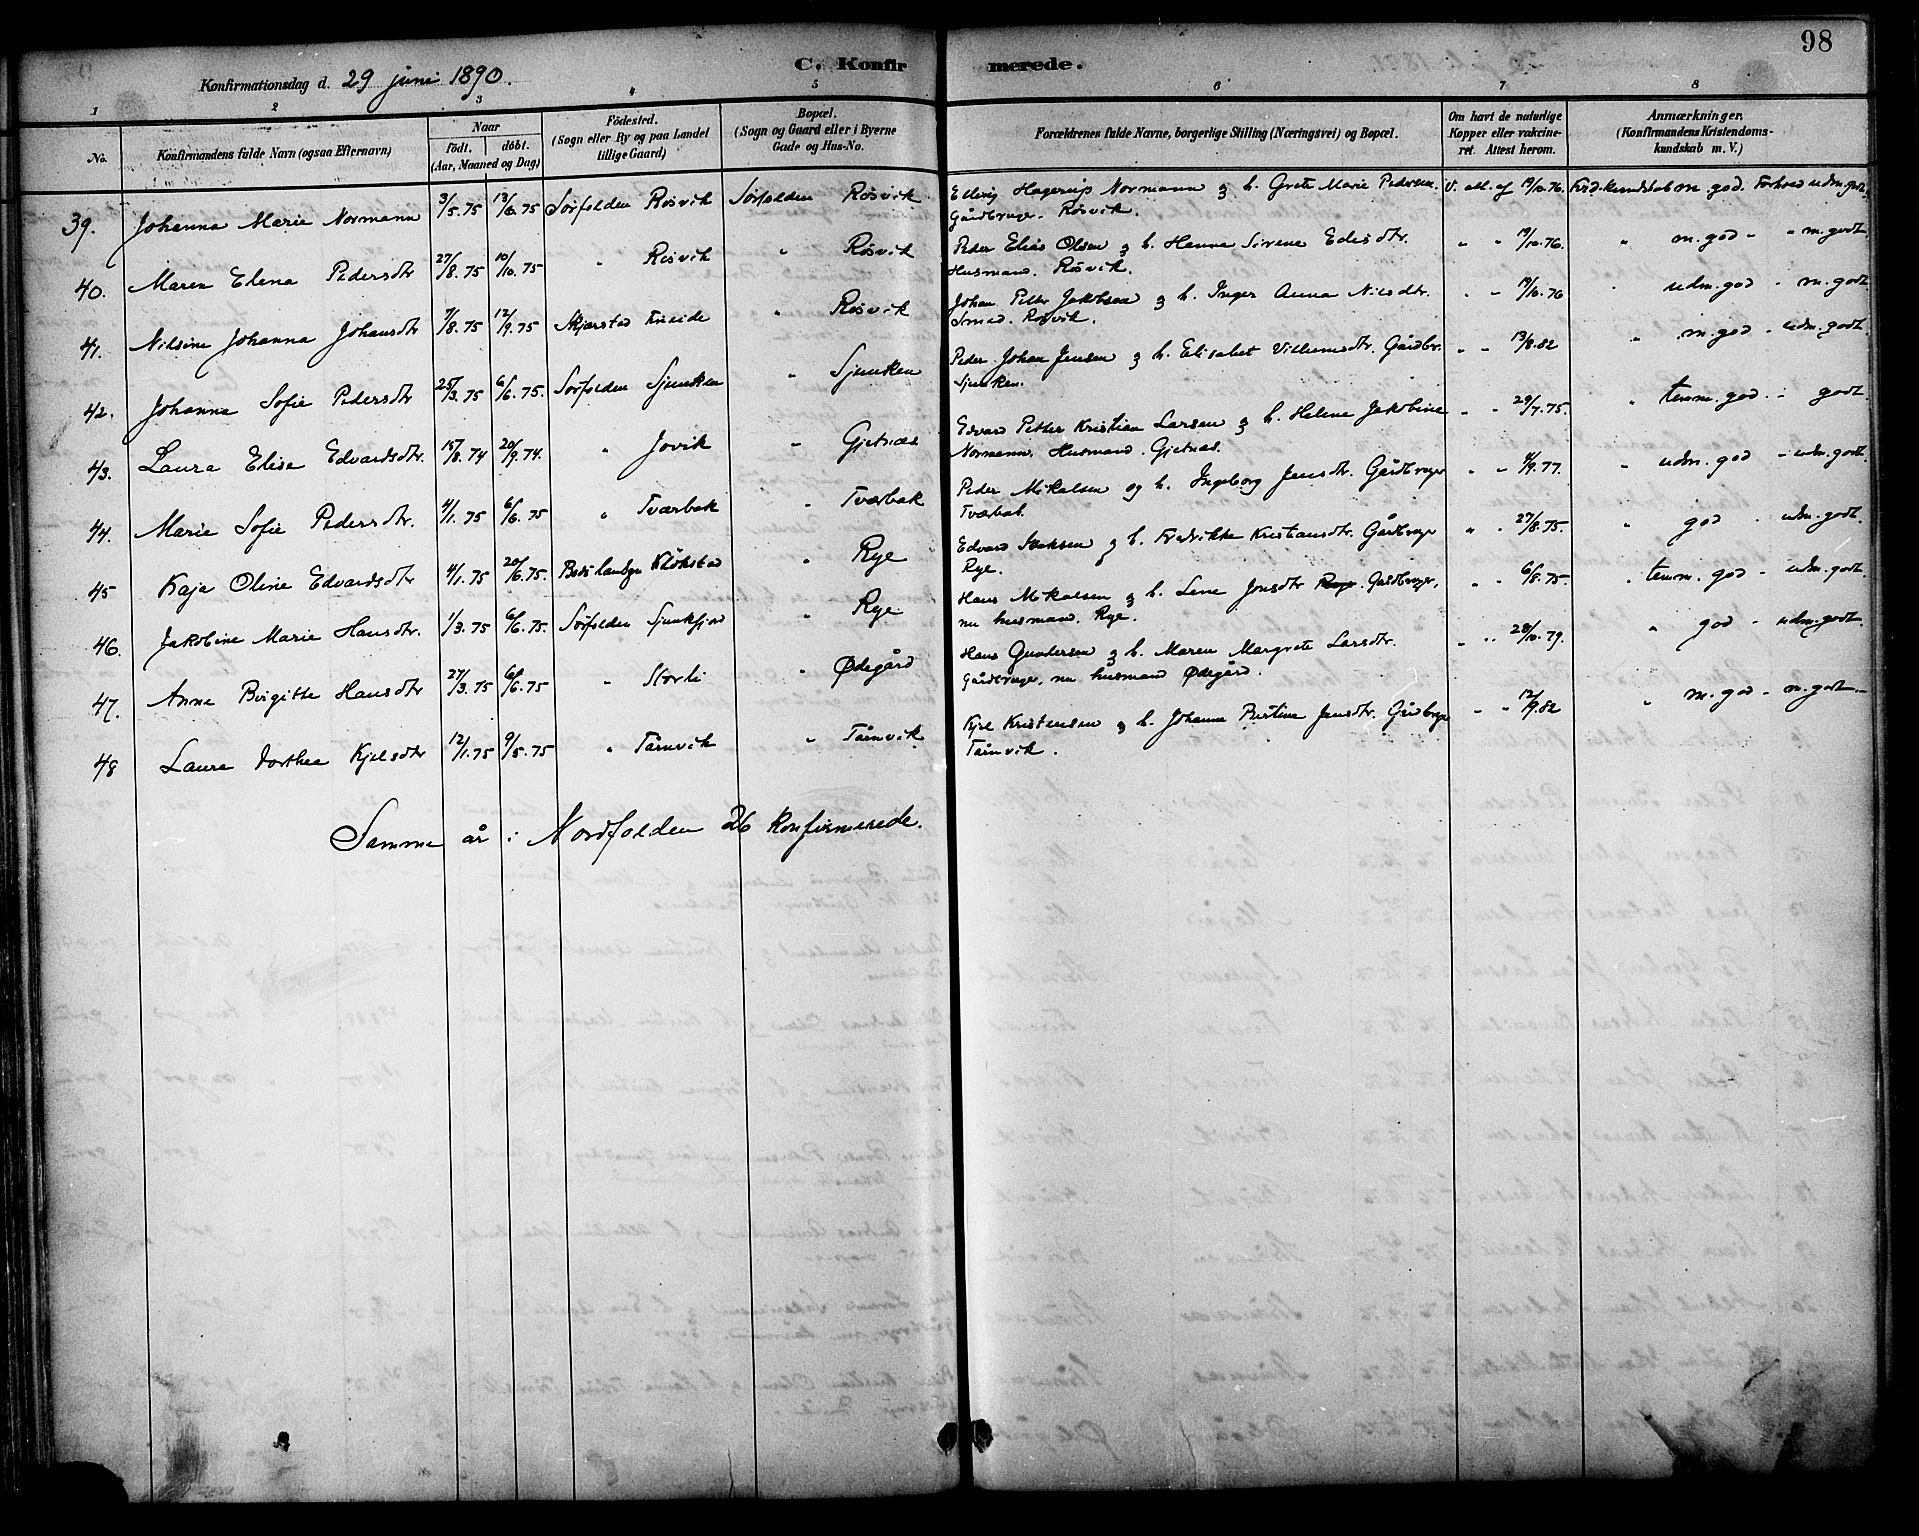 98
Konfirmationsdag d. 29 juni 1890.
C. Konfirmerede.
1 2 3 4 5 6 7 8
No.
Konfirmandens fulde Navn (ogsaa Efternavn)
Naar
født. døbt.
(Aar, Maaned og Dag)
Fødested.
(Sogn eller By og paa Landet tillige Gaard)
Bopæl.
(Sogn og Gaard eller i Byerne Gade og Hus-No.
Forældrenes fulde Navne, borgerlige Stilling (Næringsvei) og Bopæl.
Om havt de naturlige Kopper eller vakcineret. Attest herom.
Anmærkninger.
(Konfirmandens Kristendomskundskab m. V.)
39. Johanna Marie Normann 3/5.75 13/6.75 Sørfolden Røsvik Sørfolden Røsvik Hagerup Normann & h. Grete Marie Pedersen. V. att. af 19/10.76. Krd.kundskab m. god. Forhold udm. godt.
Gårdbruger. Røsvik.
40. Maren Elena Pedersdtr 27/8.75 10/10.75 " Røsvik " Røsvik Peder Elias Olsen & h. Hanna Sirene Edisdtr. " " 19/10.76. " m. god - " m. godt
Husmand. Røsvik.
41. Nilsine Johanna Johansdtr 7/8.75 12/9.75 Skjerstad " Røsvik Johan Petter Jakobsen & h. Inger Anna Nilsdtr. " " 19/10.76 " udm. god - m. godt.
Smed. Røsvik.
42. Johanna Sofie Pedersdtr 25/3.75 6/6.75. Sørfolden Sjunken " Sjunken Peder Johan Jensen & h. Elisabet Villumsdtr. Gårdbr. " " 13/8.82 " m. god - udm. godt
Sjunken.
43. Laura Elise Edvardsdtr. 15/8.74 20/9.74. " Jovik " Gjetnæs Edvard Petter Kristian Larsen & h. Helene Jakobine " " 29/7.75. " temm. god - godt
Normann. Husmand. Gjetnæs.
44. Marie Sofie Pedersdtr. 4/1.75 6/6.75 " Tværbak " Tværbak Peder Mikalsen og h. Ingeborg Jensdtr. Gårdbruger " " 4/9.77. " udm. god - udm. godt.
Tværbak.
45 Kaja Oline Edvardsdtr 4/1.75 20/6.75. Bodø landsgn Kløkstad " Rye Edvard Isaksen & h. Fredrikke Kristiansdtr. Gårdbruger " " 27/8.75. " god - udm. godt.
Rye.
46. Jakobine Marie Hansdtr. 1/3.75 6/6.75. Sørfolden Sjunkfjord " Rye Hans Mikalsen & h. Lene Jonsdtr Rye Gårdbruger, " " 6/8.75. " temm. god - udm. godt.
nu husmand. Rye.
47. Anne Birgitte Hansdtr 27/3.75 6/6.75 " Storli " Ødegård Hans Gundersen & h. Maren Margrete Larsdtr. " " 28/10.79. " god - udm. godt.
Gårdbruger, nu husmand Ødegård.
48 Laura Dorthea Kjelsdtr 12/1.75 9/5.75 " Tårnvik " Tårnvik Kjel Kristensen & h. Johanna Jensdtr. Gårdbruger " " 12/9.82 " m. god - m. godt.
Tårnvik.
Samme år i Nordfolden 26 konfirmerede.